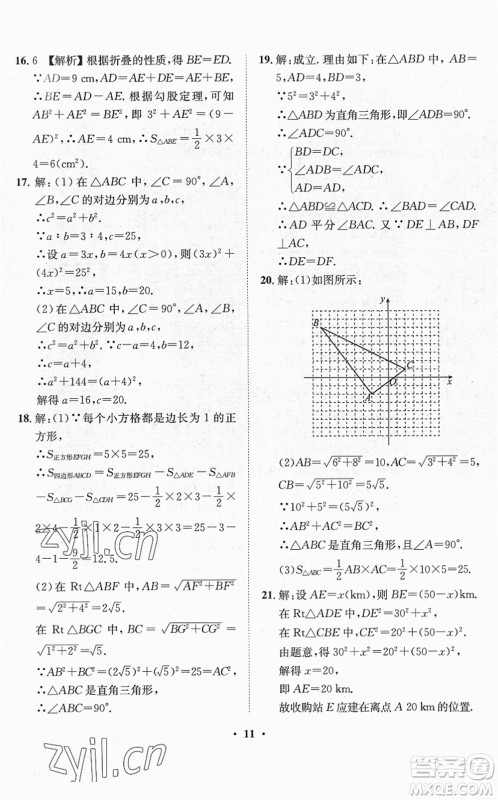 16. 6 【解析】根据折叠的性质，得 BE=ED.
∵AD=9 cm，AD=AE+DE=AE+BE，
∴BE=AD−AE. 根据勾股定理，可知
AB²+AE²=BE²，即 3²+AE²=(9−
AE)²，∴AE=4 cm，∴S△ABE=1/2×3×
4=6(cm²).
17. 解：(1)在△ABC 中，∠C=90°，∠A，
∠B，∠C 的对边分别为 a,b,c，
∴a²+b²=c².
∵a：b=3：4，c=25，
∴设 a=3x，则 b=4x，
∴(3x)²+(4x)²=25²，
∴x=5，∴a=15.
(2)在△ABC 中，∠C=90°，∠A，∠B，
∠C 的对边分别为 a,b,c，
∴a²+b²=c².
∵c−a=4，
∴c=a+4，
∴a²+144=(a+4)²，
解得 a=16，∴a=16.
18. 解：(1)∵每个小方格都是边长为 1 的正
方形，
∴S正方形EFGH=5×5=25，
∴S四边形ABCD=S正方形EFGH−S△ADE−S△AFB
−S△BCG−S△CDH=25−1/2×2×3−1/2×
2×4−1/2×1×2−1/2×3×3=25−
1/2×25=12.5.
(2)在 Rt△ABF 中，AB=√AF²+BF²=
√2²+4²=2√5.
在 Rt△BGC 中，BC=√BG²+CG²=
√1²+2²=√5.
∵AB²+BC²=(2√5)²+(√5)²=5²=AC²，
∴△ABC 是直角三角形，
∴∠ABC=90°.
19. 解：成立. 理由如下：在△ABE 中，AB=
5，AE=4，BE=3，
∵5²=3²+4²，
∴△ABE 为直角三角形，即∠AEB=90°.
∴∠ADB=∠ADC=90°.
∵{BD=CD，
∠ADB=∠ADC，
AD=AD，
∴△ABD≌△ACD，
∴AD 平分∠BAC. 又∵DE⊥AB，DF
⊥AC，
∴DE=DF.
20. 解：(1)如图所示：
y
B
C
A
O
x
(2)AB=√6²+8²=10，AC=√3²+4²=5，
CB=√5²+10²=5√5.
∵10²+5²=(5√5)²，
∴AB²+AC²=CB²，
∴△ABC 是直角三角形.
(3)S△ABC=1/2AB×AC=1/2×10×5=25.
21. 解：设 AE=x(km)，则 BE=(50−x)(km).
在 Rt△ADE 中，DE²=30²+x²，
在 Rt△CBE 中，CE²=20²+(50−x)².
由题意，得 30²+x²=20²+(50−x)²，
解得 x=20，
即 AE=20 km.
故收购站 E 应建在离点 A 20 km 的位置.
• 11 •
zyjl.cn
zyjl.cn
答案圈
MXQE.COM